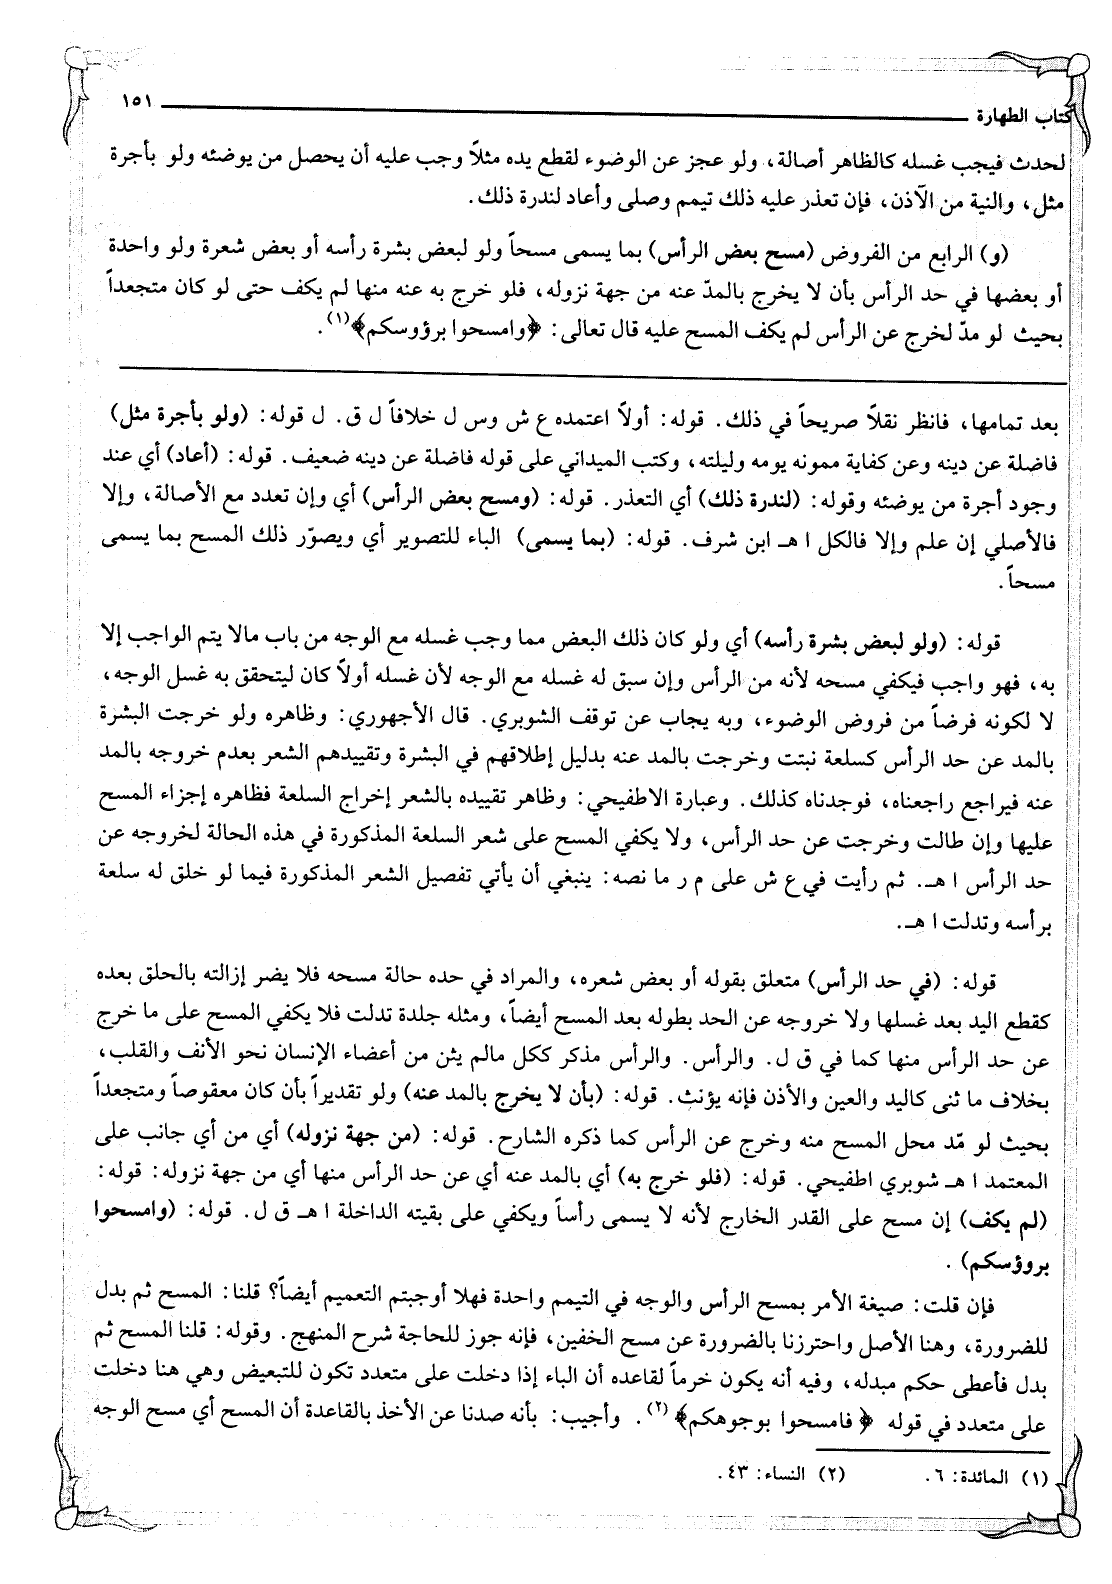 كتاب الطهارة ١٥١
لحدث فيجب غسله كالظاهر أصالة، ولو عجز عن الوضوء لقطع يده مثلاً وجب عليه أن يحصل من يوضئه ولو بأجرة
مثل، والنية من الآذن، فإن تعذر عليه ذلك تيمم وصلى وأعاد لندرة ذلك.
(و) الرابع من الفروض (مسح بعض الرأس) بما يسمى مسحاً ولو لبعض بشرة رأسه أو بعض شعرة ولو واحدة
أو بعضها في حد الرأس بأن لا يخرج بالمدّ عنه من جهة نزوله، فلو خرج به عنه منها لم يكف حتى لو كان متجعداً
بحيث لو مدّ لخرج عن الرأس لم يكف المسح عليه قال تعالى: ﴿وامسحوا برؤوسكم﴾(١).
بعد تمامها، فانظر نقلاً صريحاً في ذلك. قوله: أولاً اعتمده ع ش وس ل خلافاً ل ق. ل قوله: (ولو بأجرة مثل)
فاضلة عن دينه وعن كفاية ممونه يومه وليلته، وكتب الميداني على قوله فاضلة عن دينه ضعيف. قوله: (أعاد) أي عند
وجود أجرة من يوضئه وقوله: (لندرة ذلك) أي التعذر. قوله: (ومسح بعض الرأس) أي وإن تعدد مع الأصالة، وإلا
فالأصلي إن علم وإلا فالكل ا هـ ابن شرف. قوله: (بما يسمى) الباء للتصوير أي ويصوّر ذلك المسح بما يسمى
مسحاً.
قوله: (ولو لبعض بشرة رأسه) أي ولو كان ذلك البعض مما وجب غسله مع الوجه من باب مالا يتم الواجب إلا
به، فهو واجب فيكفي مسحه لأنه من الرأس وإن سبق له غسله مع الوجه لأن غسله أولاً كان ليتحقق به غسل الوجه،
لا لكونه فرضاً من فروض الوضوء، وبه يجاب عن توقف الشوبري. قال الأجهوري: وظاهره ولو خرجت البشرة
بالمد عن حد الرأس كسلعة نبتت وخرجت بالمد عنه بدليل إطلاقهم في البشرة وتقييدهم الشعر بعدم خروجه بالمد
عنه فيراجع راجعناه، فوجدناه كذلك. وعبارة الاطفيحي: وظاهر تقييده بالشعر إخراج السلعة فظاهره إجزاء المسح
عليها وإن طالت وخرجت عن حد الرأس، ولا يكفي المسح على شعر السلعة المذكورة في هذه الحالة لخروجه عن
حد الرأس ا هـ. ثم رأيت في ع ش على م ر ما نصه: ينبغي أن يأتي تفصيل الشعر المذكورة فيما لو خلق له سلعة
برأسه وتدلت ا هـ.
قوله: (في حد الرأس) متعلق بقوله أو بعض شعره، والمراد في حده حالة مسحه فلا يضر إزالته بالحلق بعده
كقطع اليد بعد غسلها ولا خروجه عن الحد بطوله بعد المسح أيضاً، ومثله جلدة تدلت فلا يكفي المسح على ما خرج
عن حد الرأس منها كما في ق ل. والرأس. والرأس مذكر ككل مالم يثن من أعضاء الإنسان نحو الأنف والقلب،
بخلاف ما ثنى كاليد والعين والأذن فإنه يؤنث. قوله: (بأن لا يخرج بالمد عنه) ولو تقديراً بأن كان معقوصاً ومتجعداً
بحيث لو مّد محل المسح منه وخرج عن الرأس كما ذكره الشارح. قوله: (من جهة نزوله) أي من أي جانب على
المعتمد ا هـ شوبري اطفيحي. قوله: (فلو خرج به) أي بالمد عنه أي عن حد الرأس منها أي من جهة نزوله: قوله:
(لم يكف) إن مسح على القدر الخارج لأنه لا يسمى رأساً ويكفي على بقيته الداخلة ا هـ ق ل. قوله: (وامسحوا
بروؤسكم) .
فإن قلت: صيغة الأمر بمسح الرأس والوجه في التيمم واحدة فهلا أوجبتم التعميم أيضاً؟ قلنا: المسح ثم بدل
للضرورة، وهنا الأصل واحترزنا بالضرورة عن مسح الخفين، فإنه جوز للحاجة شرح المنهج. وقوله: قلنا المسح ثم
بدل فأعطى حكم مبدله، وفيه أنه يكون خرماً لقاعده أن الباء إذا دخلت على متعدد تكون للتبعيض وهي هنا دخلت
على متعدد في قوله ﴿ فامسحوا بوجوهكم﴾(٢). وأجيب: بأنه صدنا عن الأخذ بالقاعدة أن المسح أي مسح الوجه
(١) المائدة: ٦. (٢) النساء: ٤٣.